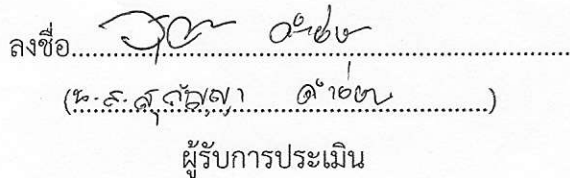 ลงชื่อ
(น.ส.สุกัญญา ดำช่วย)
ผู้รับการประเมิน